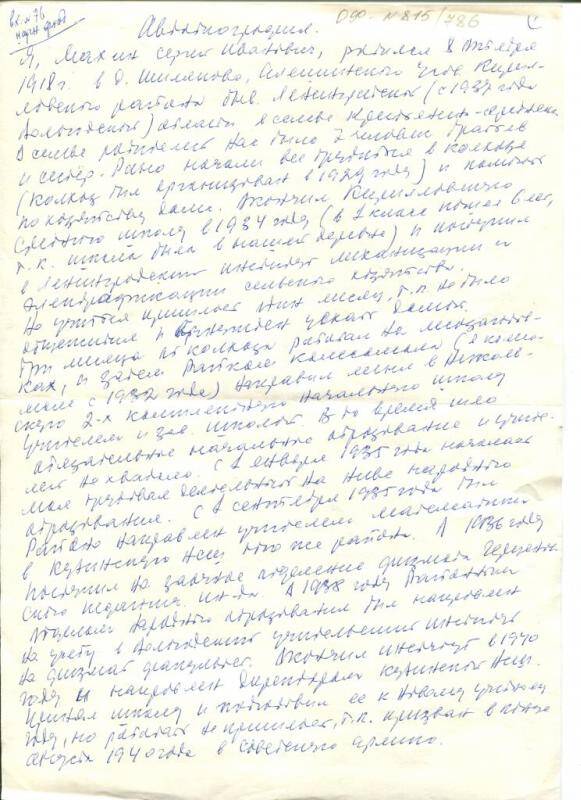 Вх. № 76
научн. фонд
ОФ - № 815/786
Автобиография.
Я, Махин Сергей Иванович, родился 8 октября
1918 г. в д. Шиляково, с/совета Кирил-
ловского района быв. Ленинградской (с 1937 года
Вологодской) области в семье крестьянина-середняка.
В семье родителей нас было 7 человек братьев
и сестёр. Рано начали все трудиться в колхозе
(колхоз был организован в 1929 году) и помогать
по хозяйству дома. Окончил Кирилловскую
среднюю школу в 1934 году (в 1 класс пошёл 6 лет,
т.к. школа была в нашей деревне) и поступил
в Ленинградский институт механизации и
электрификации сельского хозяйства.
Но учиться пришлось один месяц, т.к. не было
общежития и вынужден уехать домой.
Три месяца в колхозе работал на лесозаготов-
ках, и затем Райком комсомола (в комсо-
моле с 1932 года) направил меня в
скую 2-х комплектную начальную школу
учителем и зав. школой. В то время шло
обязательное начальное образование и учите-
лей не хватало. С 1 января 1935 года началась
моя трудовая деятельность на ниве народного
образования. С 1 сентября 1935 года был
Районо направлен учителем математики
в Кузинскую НСШ того же района. В 1936 году
поступил на заочное отделение физмата Герценов-
ского педагогич. ин-та. А 1938 году Районным
отделом народного образования был направлен
на учёбу в Вологодский учительский институт
на физмат факультет. Окончил институт в 1940
году и направлен директором Кузинской НСШ.
Принял школу и подготовил её к новому учебному
году, но работать не пришлось, т.к. призван в конце
августа 1940 года в Советскую армию.